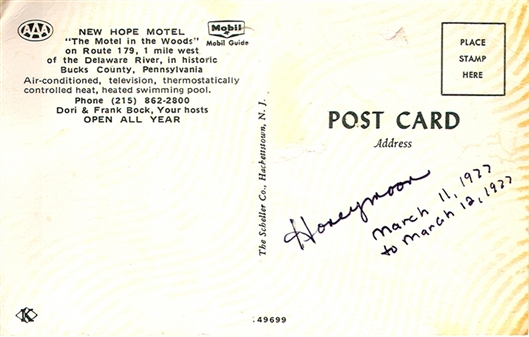 AAA
NEW HOPE MOTEL
"The Motel in the Woods"
on Route 179, 1 mile west
of the Delaware River, in historic
Bucks County, Pennsylvania
Air-conditioned, television, thermostatically
controlled heat, heated swimming pool.
Phone (215) 862-2800
Dori & Frank Bock, Your hosts
OPEN ALL YEAR
Mobil
Mobil Guide
The Scheller Co., Hackettstown, N. J.
PLACE
STAMP
HERE
POST CARD
Address
Honeymoon
March 11, 1977
to March 12, 1977
K
.49699